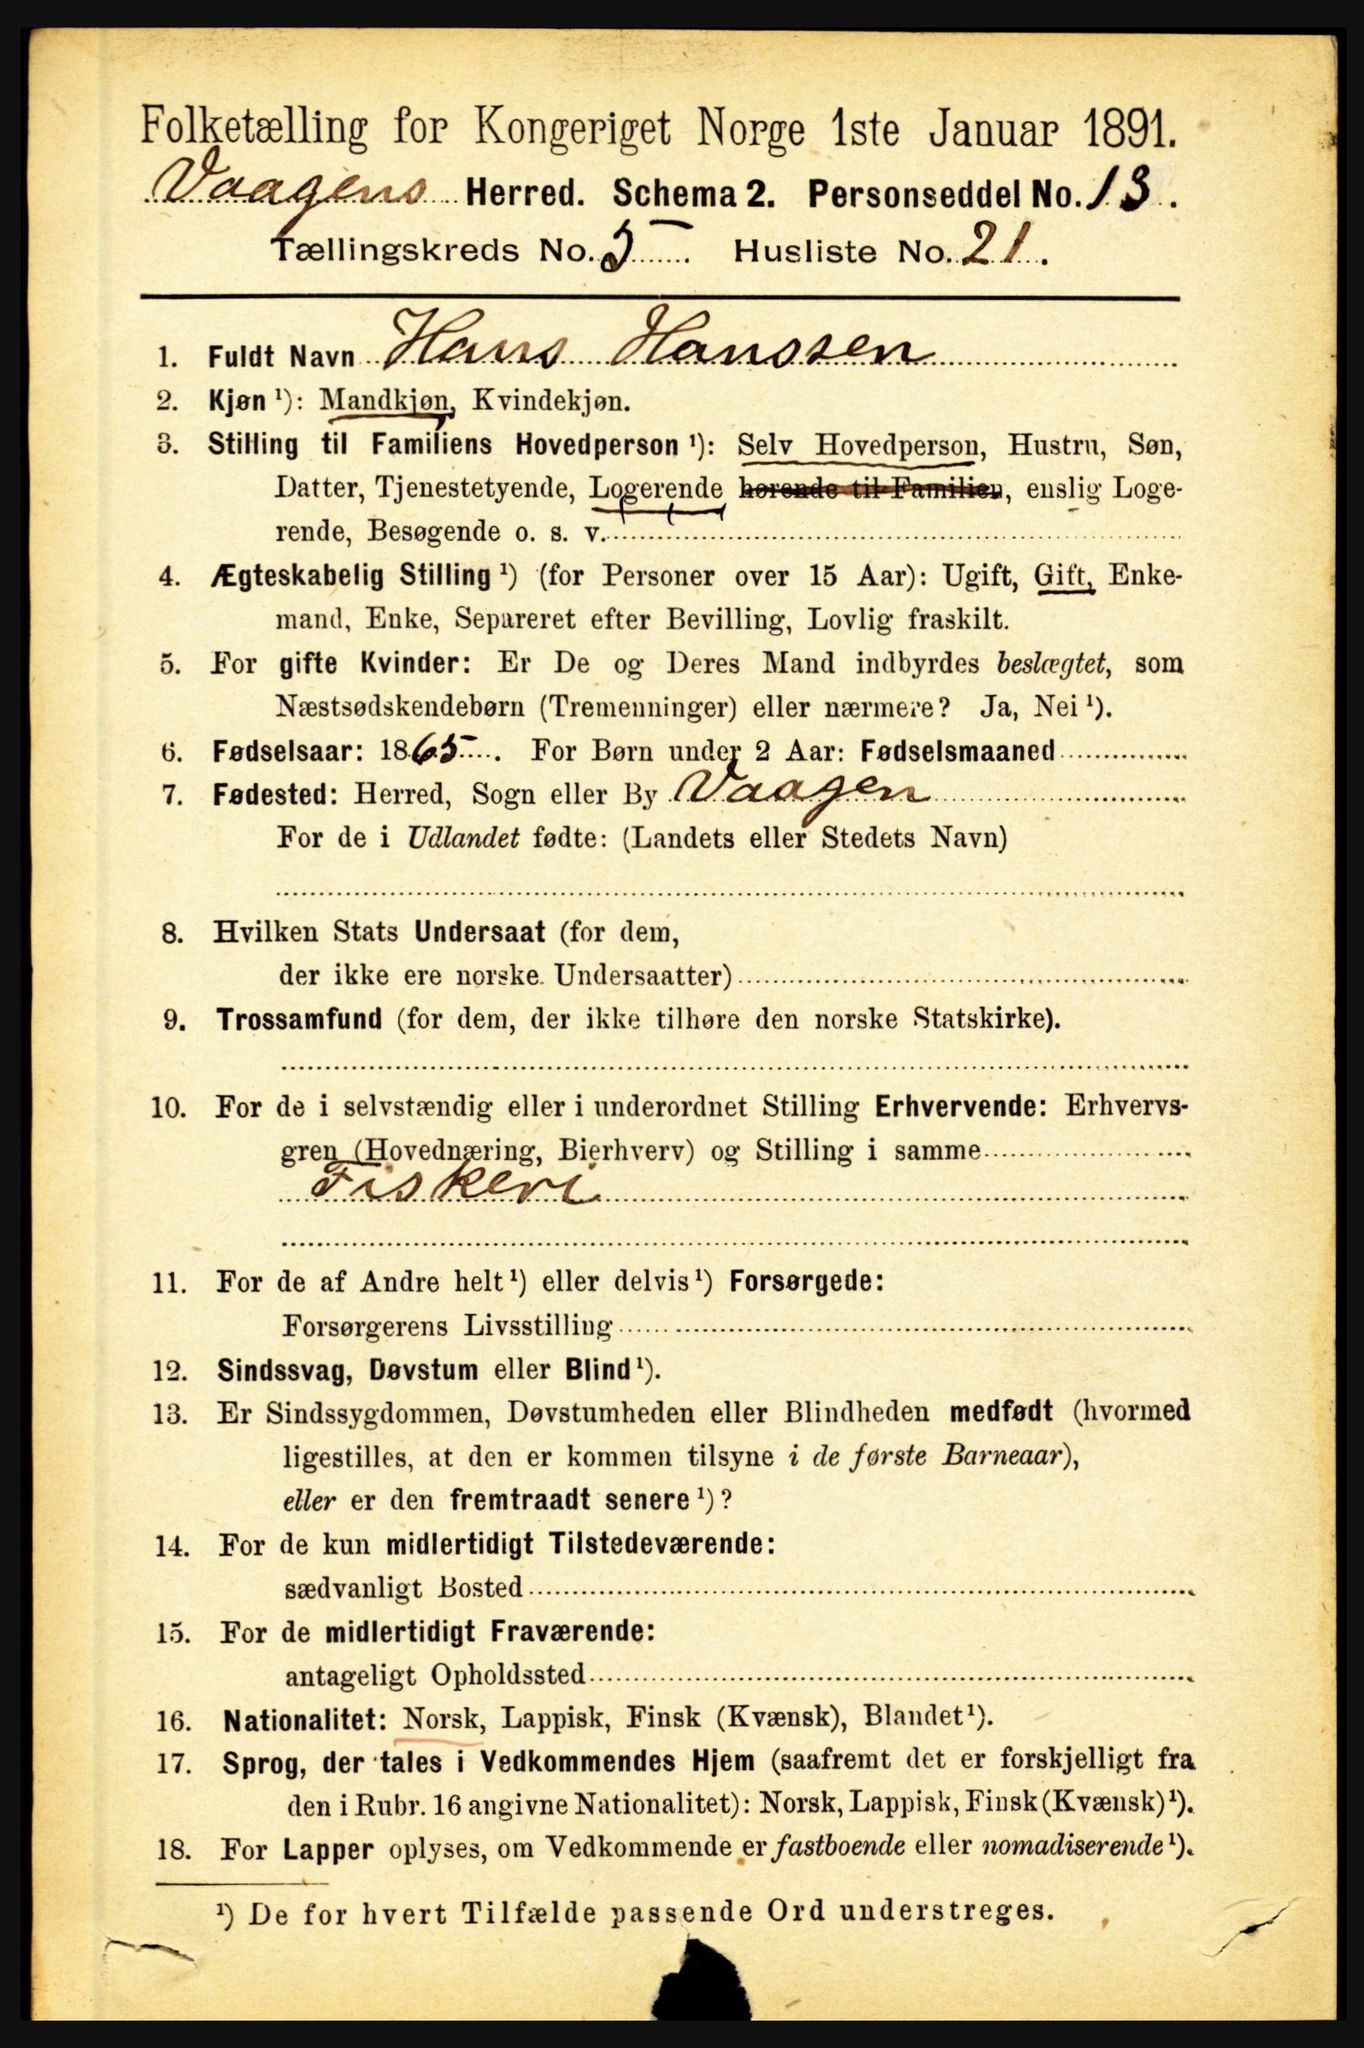 Folketælling for Kongeriget Norge 1ste Januar 1891.
Vaagens Herred. Schema 2. Personseddel No. 13.
Tællingskreds No. 5. Husliste No. 21.
1. Fuldt Navn Hans Hanssen
2. Kjøn ¹): Mandkjøn, Kvindekjøn.
3. Stilling til Familiens Hovedperson ¹): Selv Hovedperson, Hustru, Søn,
Datter, Tjenestetyende, Logerende hørende til Familien, enslig Loge-
rende, Besøgende o. s. v.
4. Ægteskabelig Stilling ¹) (for Personer over 15 Aar): Ugift, Gift, Enke-
mand, Enke, Separeret efter Bevilling, Lovlig fraskilt.
5. For gifte Kvinder: Er De og Deres Mand indbyrdes beslægtet, som
Næstsødskendebørn (Tremenninger) eller nærmere? Ja, Nei ¹).
6. Fødselsaar: 1865. For Børn under 2 Aar: Fødselsmaaned
7. Fødested: Herred, Sogn eller By Vaagen
For de i Udlandet fødte: (Landets eller Stedets Navn)
8. Hvilken Stats Undersaat (for dem,
der ikke ere norske Undersaatter)
9. Trossamfund (for dem, der ikke tilhøre den norske Statskirke).
10. For de i selvstændig eller i underordnet Stilling Erhvervende: Erhvervs-
gren (Hovednæring, Bierhverv) og Stilling i samme
Fiskeri
11. For de af Andre helt ¹) eller delvis ¹) Forsørgede:
Forsørgerens Livsstilling
12. Sindssvag, Døvstum eller Blind ¹).
13. Er Sindssygdommen, Døvstumheden eller Blindheden medfødt (hvormed
ligestilles, at den er kommen tilsyne i de første Barneaar),
eller er den fremtraadt senere ¹)?
14. For de kun midlertidigt Tilstedeværende:
sædvanligt Bosted
15. For de midlertidigt Fraværende:
antageligt Opholdssted
16. Nationalitet: Norsk, Lappisk, Finsk (Kvænsk), Blandet ¹).
17. Sprog, der tales i Vedkommendes Hjem (saafremt det er forskjelligt fra
den i Rubr. 16 angivne Nationalitet): Norsk, Lappisk, Finsk (Kvænsk) ¹).
18. For Lapper oplyses, om Vedkommende er fastboende eller nomadiserende ¹).
¹) De for hvert Tilfælde passende Ord understreges.